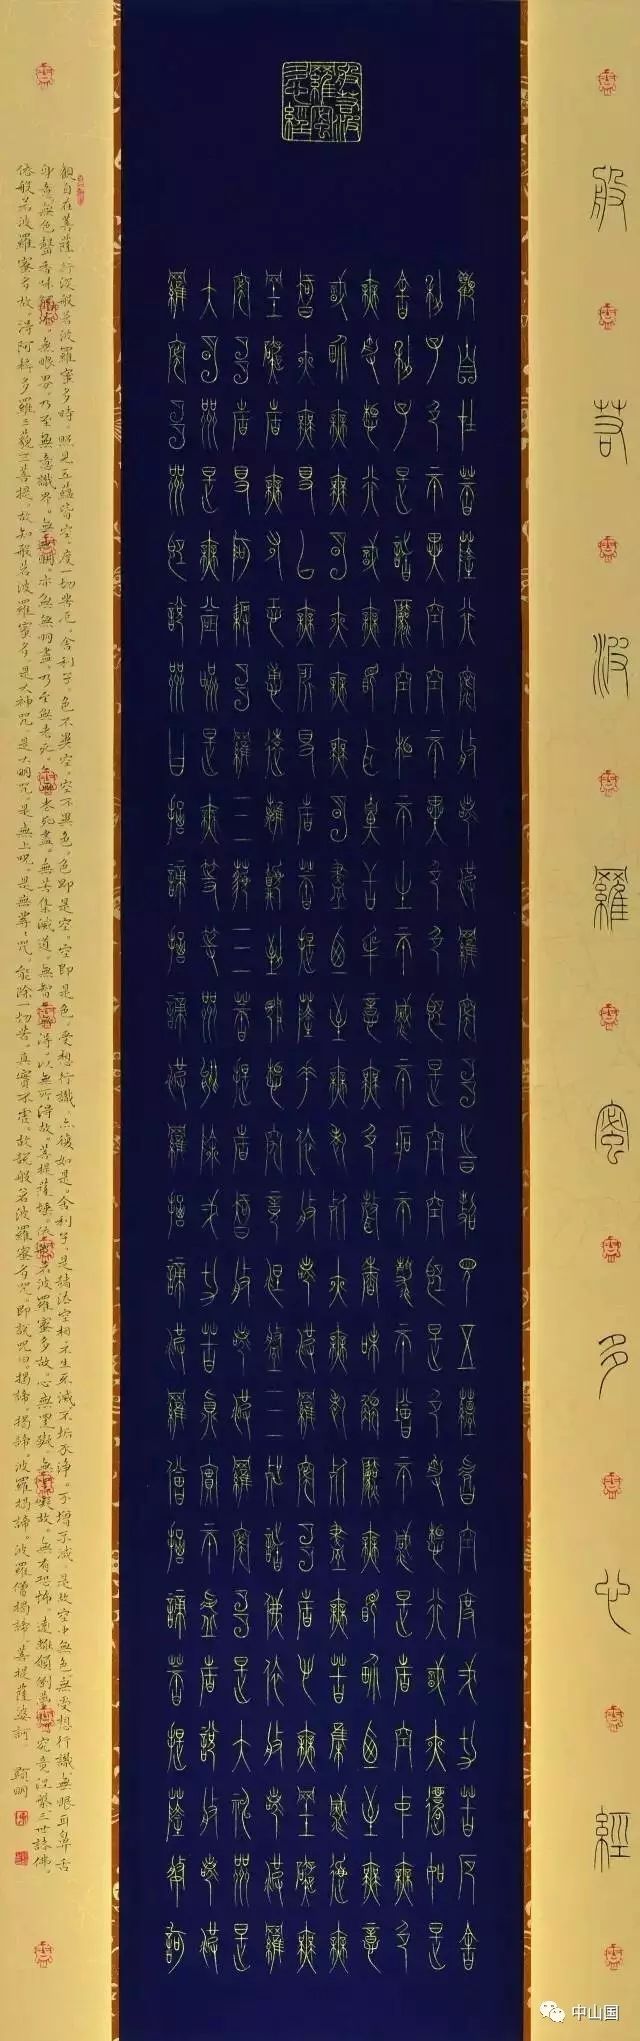 般若波羅蜜多心經
般若波羅蜜多心經
觀自在菩薩行深般若波羅蜜多時照見五蘊皆空度一切苦厄舍
利子色不異空空不異色色即是空空即是色受想行識亦復如是
舍利子是諸法空相不生不滅不垢不淨不增不減是故空中無色
無受想行識無眼耳鼻舌身意無色聲香味觸法無眼界乃至無意
識界無無明亦無無明盡乃至無老死亦無老死盡無苦集滅道無
智亦無得以無所得故菩提薩埵依般若波羅蜜多故心無罣礙無
罣礙故無有恐怖遠離顛倒夢想究竟涅槃三世諸佛依般若波羅
蜜多故得阿耨多羅三藐三菩提故知般若波羅蜜多是大神咒是
大明咒是無上咒是無等等咒能除一切苦真實不虛故說般若波
羅蜜多咒即說咒曰揭諦揭諦波羅揭諦波羅僧揭諦菩提薩婆訶
觀自在菩薩。行深般若波羅蜜多時。照見五蘊皆空。度一切苦厄。舍利子。色不異空。空不異色。色即是空。空即是色。受想行識。亦復如是。舍利子。是諸法空相。不生不滅。不垢不淨。不增不減。是故空中無色。無受想行識。無眼耳鼻舌
身意。無色聲香味觸法。無眼界。乃至無意識界。無無明。亦無無明盡。乃至無老死。亦無老死盡。無苦集滅道。無智亦無得。以無所得故。菩提薩埵。依般若波羅蜜多故。心無罣礙。無罣礙故。無有恐怖。遠離顛倒夢想。究竟涅槃。三世諸佛。
依般若波羅蜜多故。得阿耨多羅三藐三菩提。故知般若波羅蜜多。是大神咒。是大明咒。是無上咒。是無等等咒。能除一切苦。真實不虛。故說般若波羅蜜多咒。即說咒曰。揭諦。揭諦。波羅揭諦。波羅僧揭諦。菩提薩婆訶。 顯明
中山国